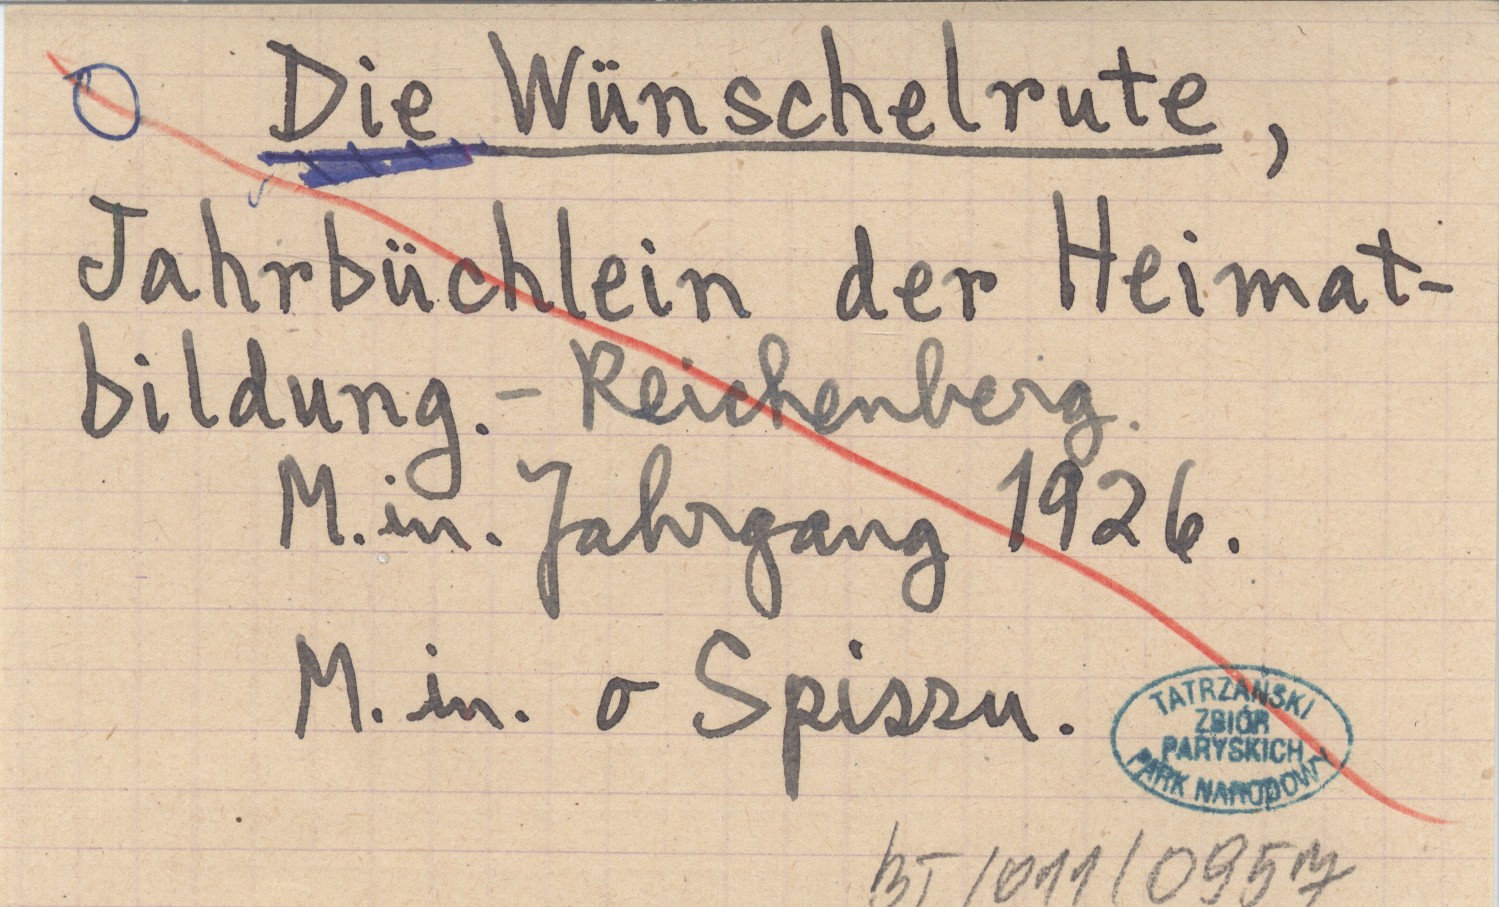 Die Wünschelrute,
Jahrbüchlein der Heimat-
bildung. - Reichenberg.
M. in. Jahrgang 1926.
M. in. o Spiszu.
TATRZAŃSKI
ZBIÓR
PARYSKICH
PARK NARODOWY
BT/011/0957